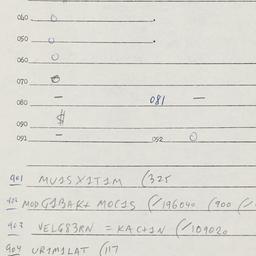 040 0
050 0
060 0
070 0
080 — 081 —
090 $
091 — 092 0
901 MU1SX1T1M (325
902 MODG1BAK+ MOC1S (/196040 (900 (/
903 VELG83RN = KAC+1N (/109020
904 UR1M1LAT (117